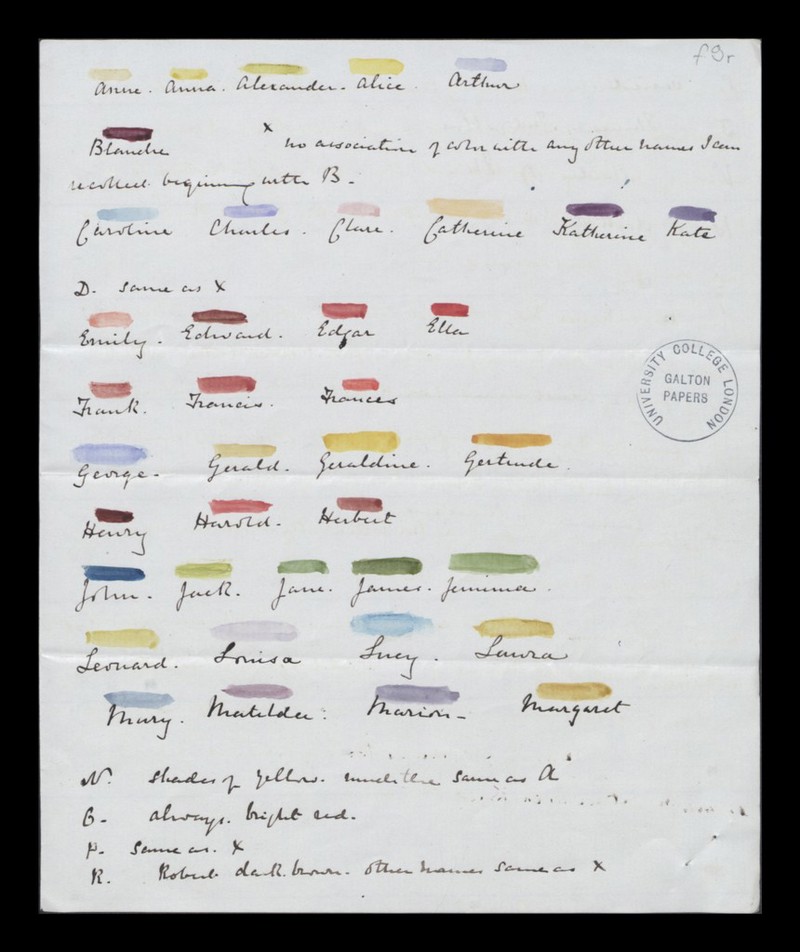 f 9r
Anne. Anna. Alexander. Alice. Arthur
Blanche x no association of color with any other names I can
recollect beginning with B -
Caroline Charles. Clare. Catherine Katherine Kate
D. same as x
Emily. Edward. Edgar Ella
Frank. Francis. Frances
George. Gerald. Geraldine. Gertrude.
Henry Harold. Herbert
John. Jack. Jane. James. Jemima.
Leonard. Louisa Lucy. Laura
Mary. Matilda. Marion - Margaret
N. shades of yellow. much the same as A
O - always. bright red.
P. same as. x
R. Robert dark. brown. other names same as x
UNIVERSITY COLLEGE LONDON
GALTON
PAPERS